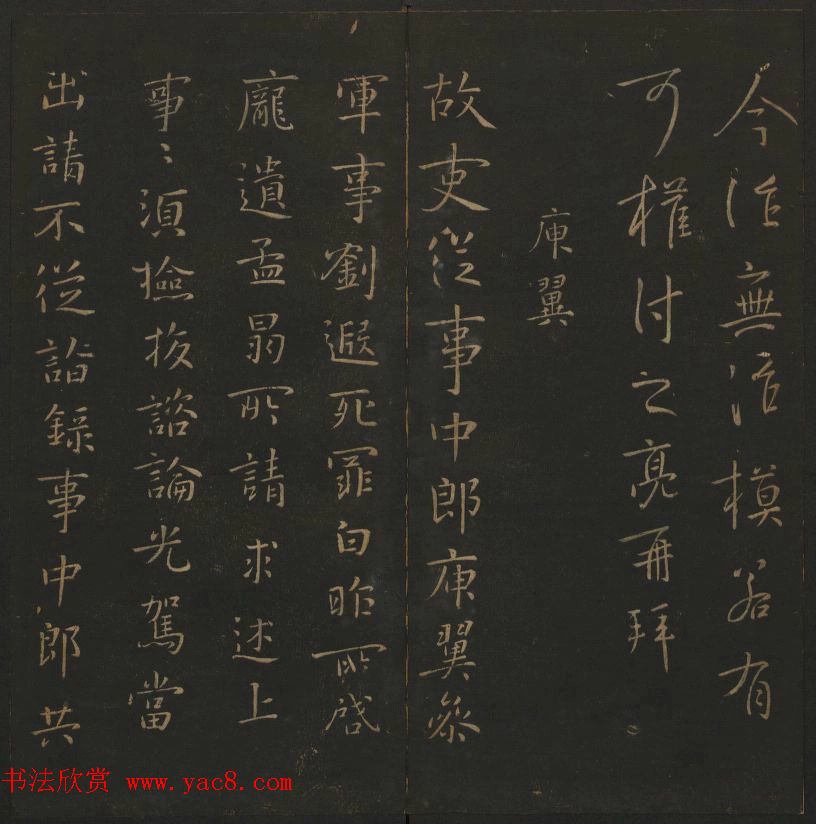 今無模若有
可權付之亮再拜
庾翼
故吏從事中郎庾翼參
軍事劉遐死罪白昨所啓
龐遺孟所請求述上
事〻須檢校諮論光駕當
出請不從詣錄事中郎共
书法欣赏 www.yac8.com